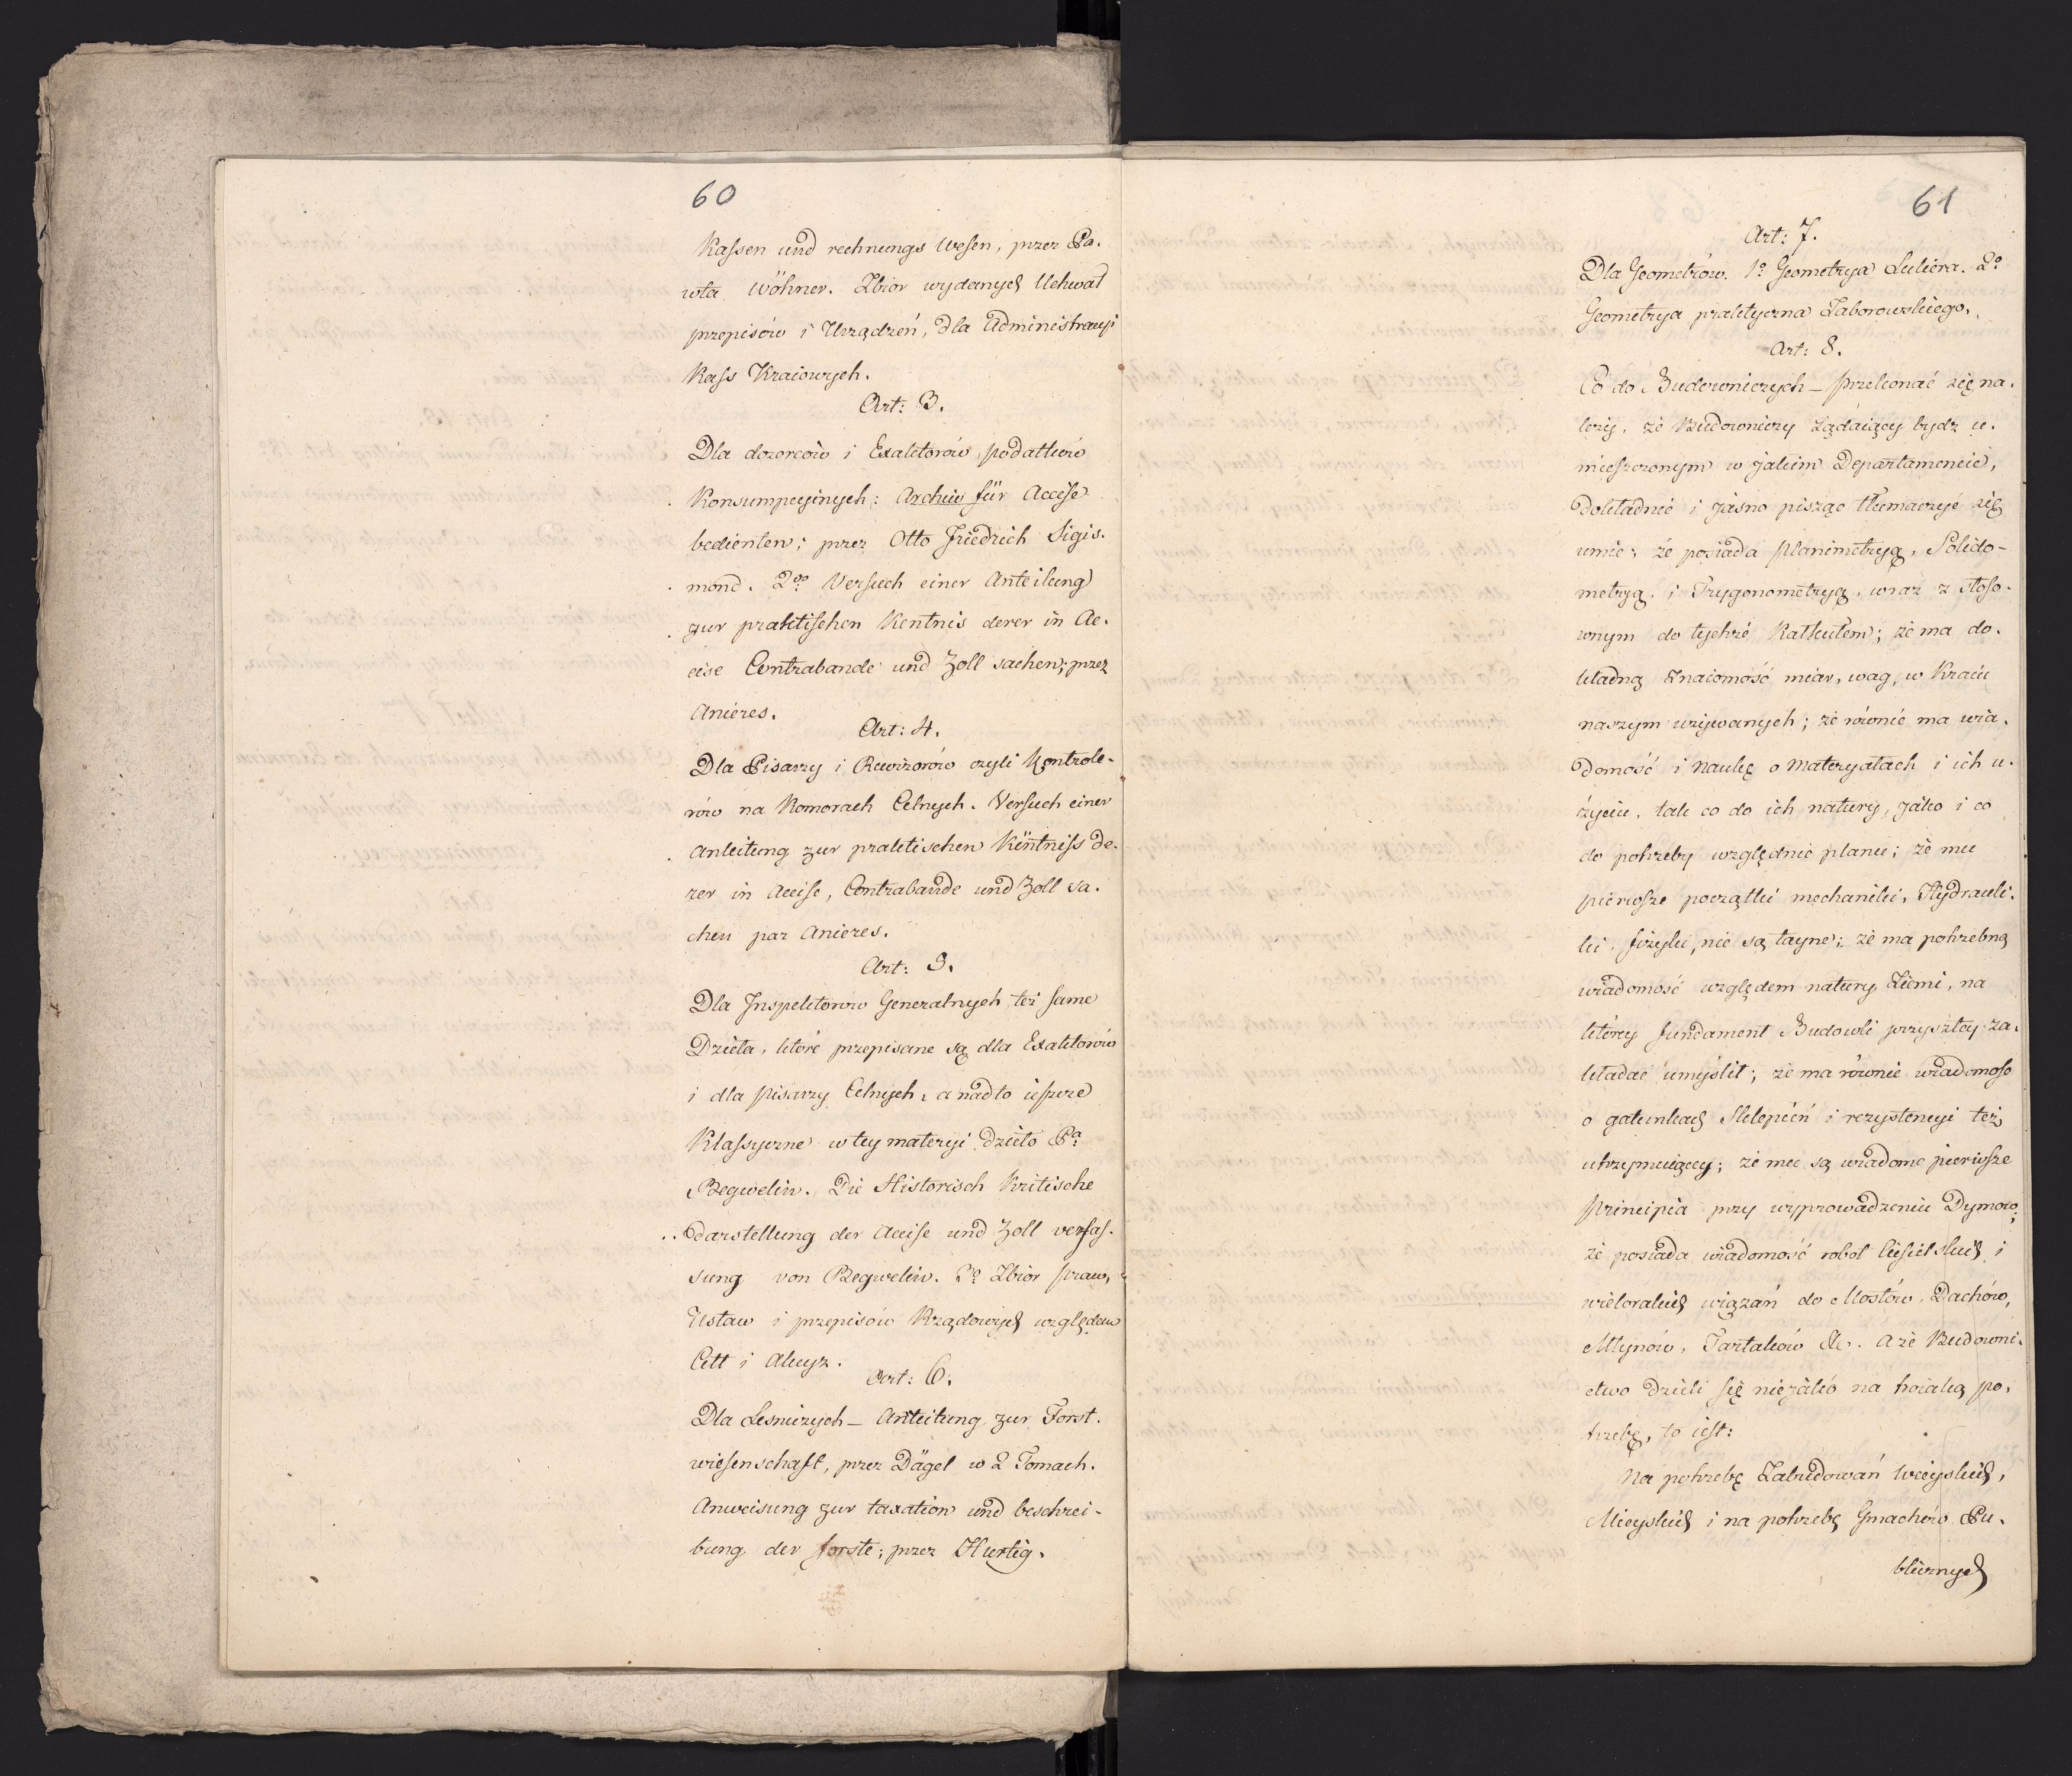 60
Kassen und rechnungs Wesen, przez Pa.
wła Wöhner. Zbior wydanych Uchwał
przepisów i Urządzeń, dla Administracyi
Kass Kraiowych.
Art: 3.
Dla dozorców i Exaktorów podatków
Konsumpcyinych: Archiw für Accise
bedienten; przez Otto Friedrich Sigis.
mond. 2do Versuch einer Anteilung
zur praktischen Kentnis derer in Ac.
cise Contrabande und Zoll sachen; przez
Anieres.
Art: 4.
Dla Pisarzy i Rewizorów czyli Kontrole-
rów na Komorach Celnych. Versuch einer
Anleitung zur praktischen Kentniss de.
rer in Accise, Contrabande und Zoll sa.
chen par Anieres.
Art: 5.
Dla Inspektorów Generalnych też same
Dzieła, które przepisane są dla Exaktorów
i dla pisarzy Celnych, a nadto ieszcze
Klassyczne w tey materyi dzieło Pa
Begwelin. Die Historisch Kritische
Darstellung der Accise und Zoll verfas.
sung von Begwelin. 3o Zbior praw,
Ustaw i przepisów Rządowych względem
Cell i Akcyz.
Art: 6.
Dla Lesniczych _ Anleitung zur Forst.
wiesenschaft, przez Dägel w 2 Tomach.
Anweisung zur taxation und beschrei-
bung der forste; przez Hurtig.
61
Art: 7.
Dla Geometrów. 1o Geometrya Luliera. 2o
Geometrya praktyczna Zaborowskiego.
Art: 8.
Co do Budowniczych _ przekonać się na.
leży, że Budowniczy żądaiący bydz u.
mieszczonym w jakim Departamencie,
dokładnie i jasno pisząc tłumaczyć się
umie; że posiada Planimetryą, Solido-
metryą, i Trygonometryą, wraz z stoso.
wnym do tychże Kalkułem; że ma do.
kładną Znaiomość miar, wag, w Kraiu
naszym używanych; że równie ma wia.
domość i Naukę o Materyałach i ich u.
życiu, tak co do ich natury, jako i co
do potrzeby względnie planu; że mu
pierwsze początki mechaniki, Hydrauli.
ki, fizyki, nie są tayne; że ma potrzebną
wiadomość względem natury Ziemi, na
którey fundament Budowli przyszłey za.
kładać umyślił; że ma równie wiadomość
o gatunkach Sklepień i rezystencyi też
utrzymuiącey; że mu są wiadome pierwsze
Principia przy wyprowadzeniu Dymow;
że posiada wiadomość robot Ciesielskich i
wielorakich wiązań do Mostów, Dachów,
Młynów, Tartaków &c. A że Budowni.
ctwo dzieli się niejako na troiaką po,
trzebę, to iest:
Na potrzebę Zabudowań Wieyskich,
Mieyskich i na potrzebę Gmachów Pu.
blicznych